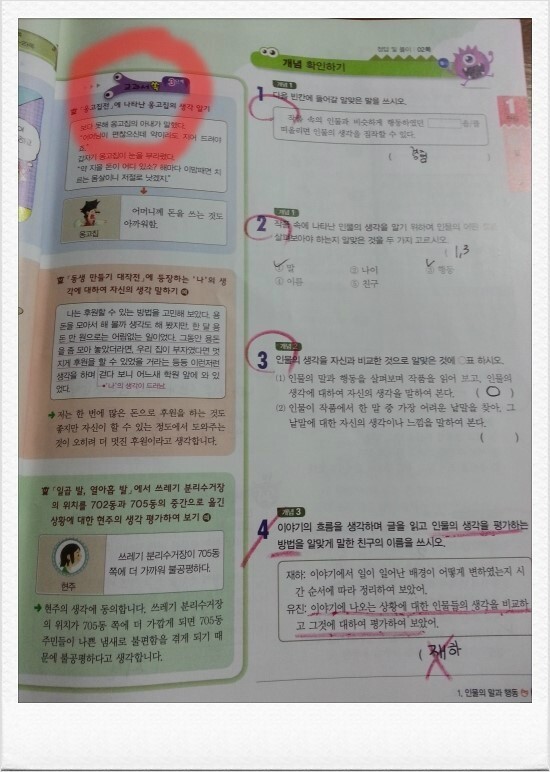 교과서
『옹고집전』에 나타난 옹고집의 생각 알기
보다 못해 옹고집의 아내가 말했다.
"어머님이 편찮으신데 약이라도 지어 드려야
갑자기 옹고집이 눈을 부라렸다.
"약 지을 돈이 어디 있소? 해마다 이맘때면 치
르는 몸살이니 저절로 낫겠지."
옹고집
어머니께 돈을 쓰는 것도
아까워함.
『동생 만들기 대작전』에 등장하는 "나"의 생
각에 대하여 자신의 생각 말하기 예
나는 후원할 수 있는 방법을 고민해 보았다. 용
돈을 모아서 해 볼까 생각도 해 봤지만, 한 달 용
돈 만 원으로는 어림없는 일이었다. 그동안 용돈
을 좀 모아 놓았더라면, 우리 집이 부자였다면 멋
지게 후원을 할 수 있었을 거라는 등등 이런저런
생각을 하며 걷다 보니 어느새 학원 앞에 와 있
었다.
"나"의 생각이 드러남.
저는 한 번에 많은 돈으로 후원을 하는 것도
좋지만 자신이 할 수 있는 정도에서 도와주는
것이 오히려 더 멋진 후원이라고 생각합니다.
『일곱 발, 열아홉 발』에서 쓰레기 분리수거장
의 위치를 702동과 705동의 중간으로 옮긴
상황에 대한 현주의 생각 평가하여 보기 예
현주
쓰레기 분리수거장이 705동
쪽에 더 가까워 불공평하다.
현주의 생각에 동의합니다. 쓰레기 분리수거장
의 위치가 705동 쪽에 더 가깝게 되면 705동
주민들이 나쁜 냄새로 불편함을 겪게 되기 때
문에 불공평하다고 생각합니다.
정답 및 풀이 02쪽
개념 확인하기
1
개념 1
1 다음 빈칸에 들어갈 알맞은 말을 쓰시오.
작품 속의 인물과 비슷하게 행동하였던 을/를
떠올리면 인물의 생각을 짐작할 수 있다.
( 경험 )
개념 1
2 작품 속에 나타난 인물의 생각을 알기 위하여 인물의 어떤
살펴보아야 하는지 알맞은 것을 두 가지 고르시오.
( 1,3
① 말 ② 나이 ③ 행동
④ 이름 ⑤ 친구
개념 2
3 인물의 생각을 자신과 비교한 것으로 알맞은 것에 ○표 하시오.
(1) 인물의 말과 행동을 살펴보며 작품을 읽어 보고, 인물의
생각에 대하여 자신의 생각을 말하여 본다. ( ○ )
(2) 인물이 작품에서 한 말 중 가장 어려운 낱말을 찾아, 그
낱말에 대한 자신의 생각이나 느낌을 말하여 본다.
( )
개념 3
4 이야기의 흐름을 생각하며 글을 읽고 인물의 생각을 평가하는
방법을 알맞게 말한 친구의 이름을 쓰시오.
재하: 이야기에서 일이 일어난 배경이 어떻게 변하였는지 시
간 순서에 따라 정리하여 보았어.
유진: 이야기에 나오는 상황에 대한 인물들의 생각을 비교하
고 그것에 대하여 평가하여 보았어.
( 재하
1. 인물의 말과 행동